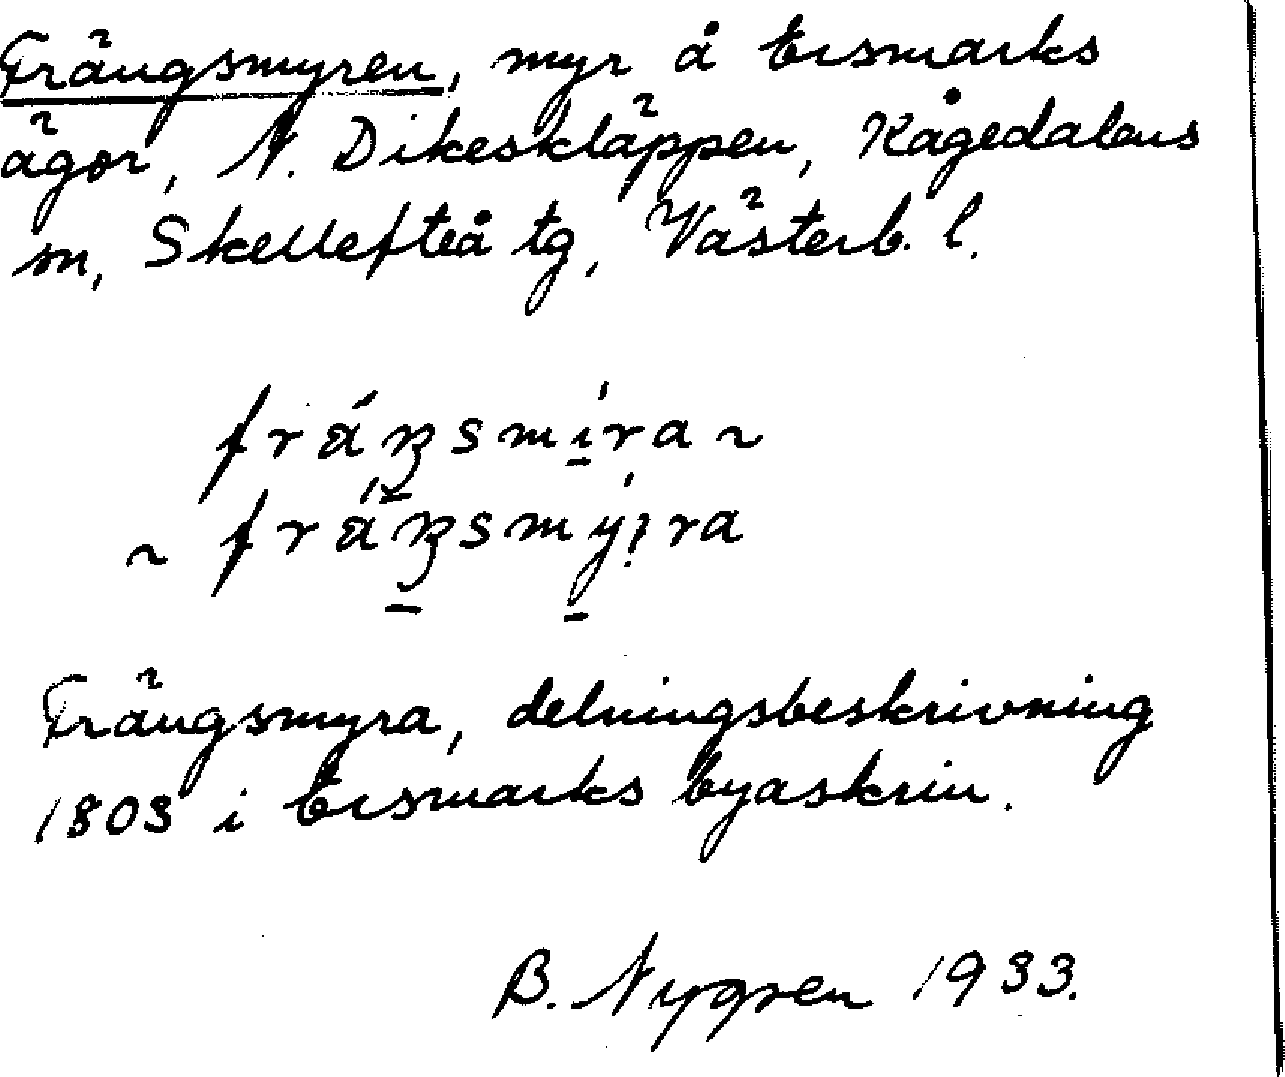 Frängsmyren, myr å Ersmarks
ägor, N. Dikeskläppen, Kågedalens
m, Skellefteå tg, Västerb. l.
fráŋsmíra ~
~ fráŋsmýıra
Frängsmyra, delningsbeskrivning
1803 i Ersmarks byaskrin.
B. Nygren 1933.